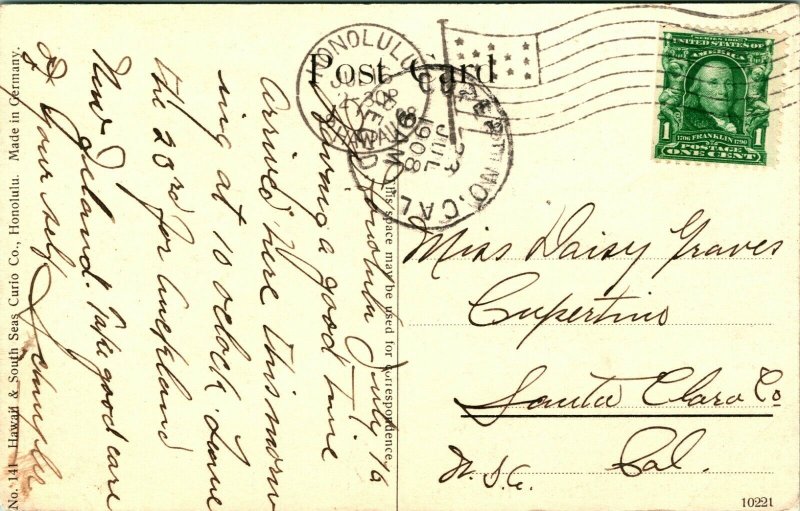 Post Card
HONOLULU
HAWAII
1908
CUPERTINO, CAL
JUL
23
1908
SERIES 1902
UNITED STATES OF
AMERICA
1706 FRANKLIN 1790
1 POSTAGE 1
ONE CENT
This space may be used for correspondence.
Honolulu July 16
Having a good time
arrived here this morn
ing at 10 oclock. Leave
the 23rd for Auckland
New Zeland. Take good care
of your self
Miss Daisy Graves
Cupertino
Santa Clara Co
Cal.
U.S.A.
No. 141 Hawaii & South Seas Curio Co., Honolulu. Made in Germany.
10221